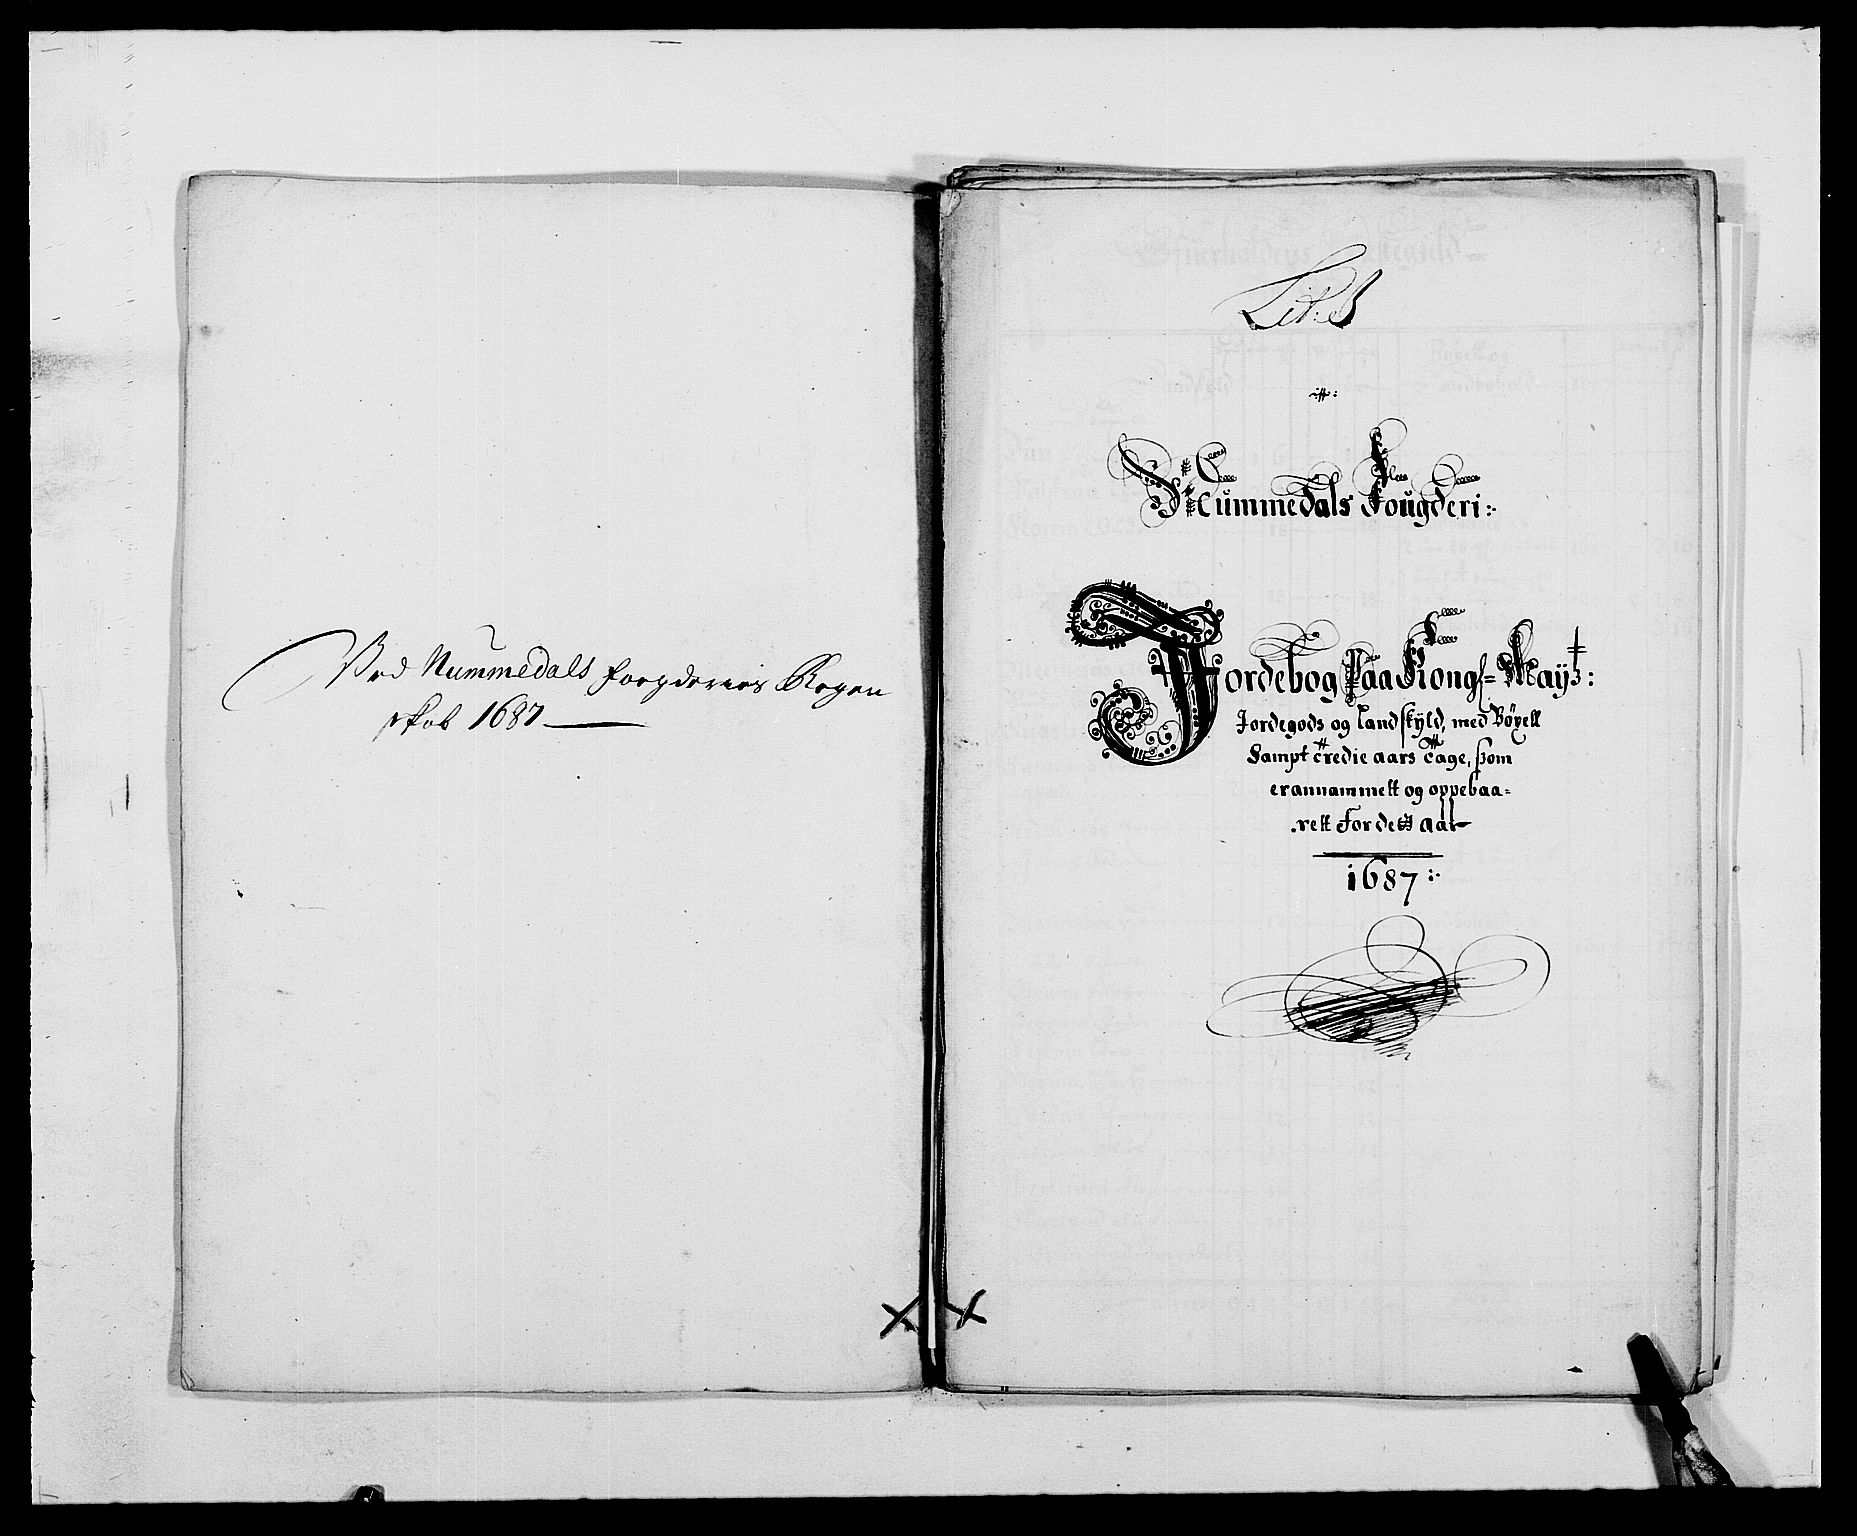 Ved Nummedals fogderies Regen
skab 1687
Lit: 
Nummedals Fougderi:
Jordebog Paa Kongl= Mayts:
Jordegods og Landskÿld, med Böxell
Sampt tredie aars tage, som
er annammett og oppebaa=
rett for dett aar
1687: